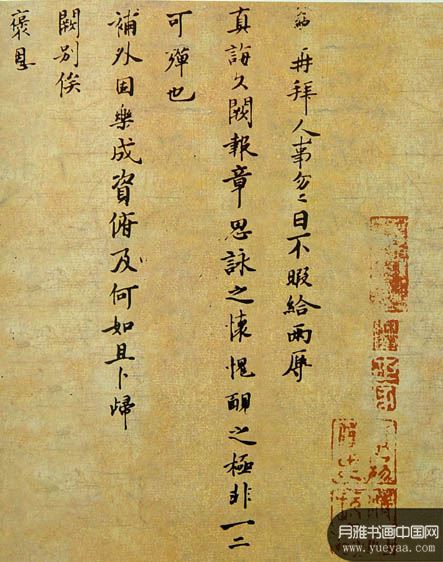 翁再拜人事匆匆日不暇給兩辱
真誨久闕報章思詠之懷愧靦之極非一二
可殫也
補外固樂成資俯及何如且卜歸
闕別俟
褒恩
月雅书画中国网
www.yueyaa.com